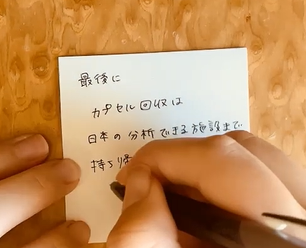 最後に
カプセル回収は
日本の分析できる施設まで
持ち